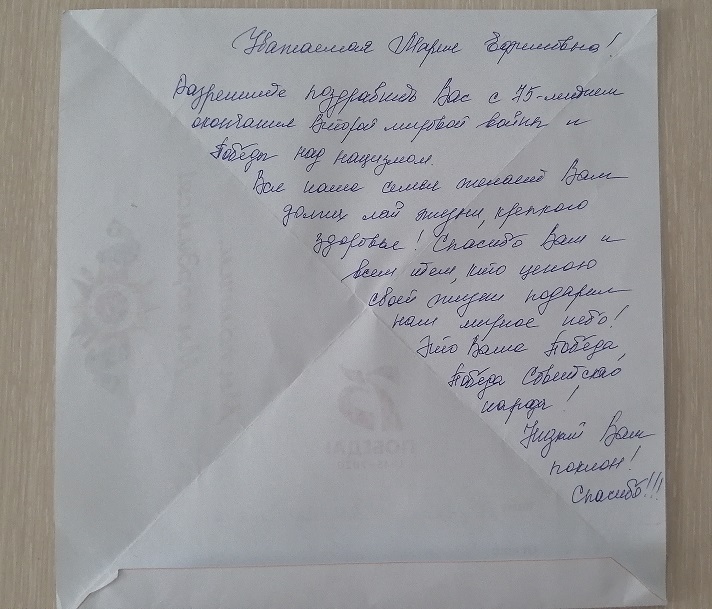 Уважаемая Мария Ефимовна!
Разрешите поздравить Вас с 75-летием
окончания Второй мировой войны и
Победы над нацизмом.
Вся наша семья желает Вам
долгих лет жизни, крепкого
здоровья! Спасибо Вам и
всем тем, кто ценою
своей жизни подарил
нам мирное небо!
Это Ваша Победа,
Победа Советского
народа!
Низкий Вам
поклон!
Спасибо!!!
ПОБЕДА!